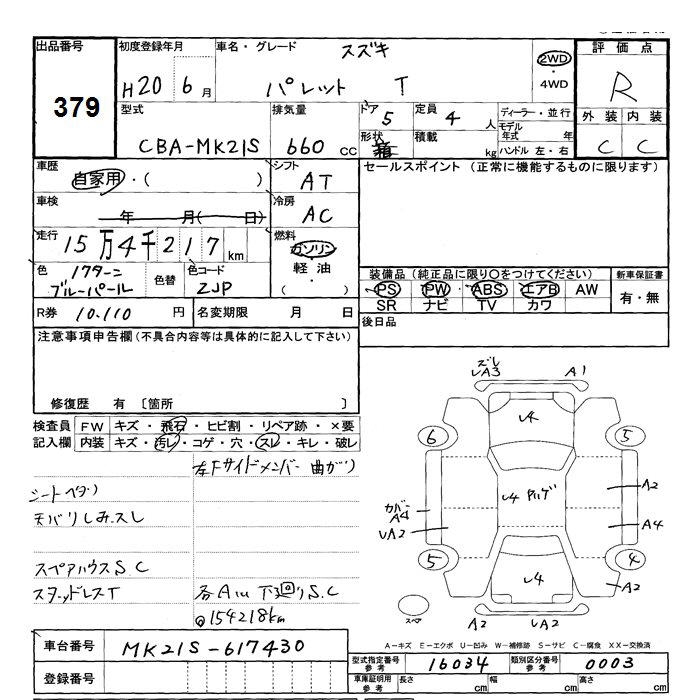 出品番号 初度登録年月 車名・グレード スズキ 2WD ・ 4WD 評価点
379 H20 6月 パレット T R
型式 CBA-MK21S 排気量 660 CC ドア 5 定員 4人 ディーラー・並行 外装 内装
形状 箱 積載 kg モデル年式 年 ハンドル 左・右 C C
車歴 自家用・( ) シフト AT セールスポイント (正常に機能するものに限ります)
車検 年 月( 日) 冷房 AC
走行 15万4千217km 燃料 ガソリン
軽油
・( )
色 ブルーパール 色替 色コード ZJP 装備品 (純正品に限り○をつけてください) 新車保証書
PS PW ABS エアB AW 有・無
SR ナビ TV カワ
R券 10,110 円 名変期限 月 日 後日品
注意事項申告欄 (不具合内容等は具体的に記入して下さい)
修復歴 有 〔箇所 〕
検査員記入欄 FW キズ・飛石・ヒビ割・リペア跡・×要
内装 キズ・汚レ・コゲ・穴・スレ・キレ・破レ
左Fサイドメンバー 曲がり
シートヘタリ
天バリしみ.スレ
スペアハウスSC
スタッドレスT 各AIU 下廻りS.C
@154218km
ズレ
UA3 A1
U4
6 5
A2
U4
カバー
A4 A4
UA2
5 4
U4
A2
スペア
A2 UA2
A-キズ E-エクボ U-凹み W-補修跡 S-サビ C-腐食 XX-交換済
車台番号 MK21S-617430 型式指定番号 参考 16034 類別区分番号 参考 0003
登録番号 車庫証明用 参考 長さ cm 幅 cm 高さ cm